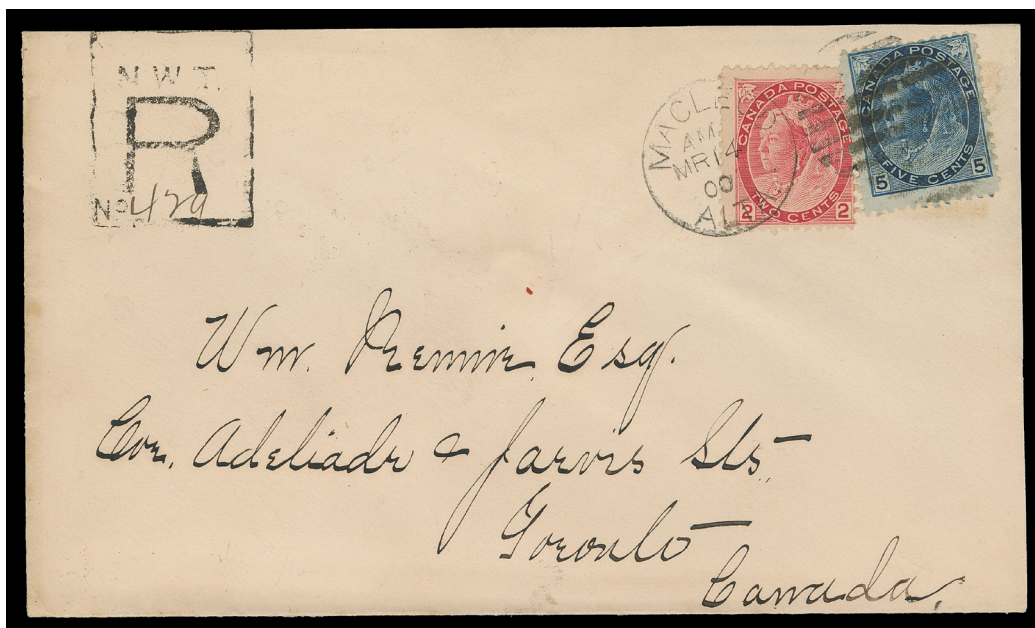 N.W.T.
R
No 429
MACLEOD
AM
MR 14
00
ALTA
CANADA POSTAGE
2 TWO CENTS 2
CANADA POSTAGE
5 FIVE CENTS 5
Wm. Rennie Esq.
Cor. Adeliade & Jarvis Sts
Toronto
Canada.